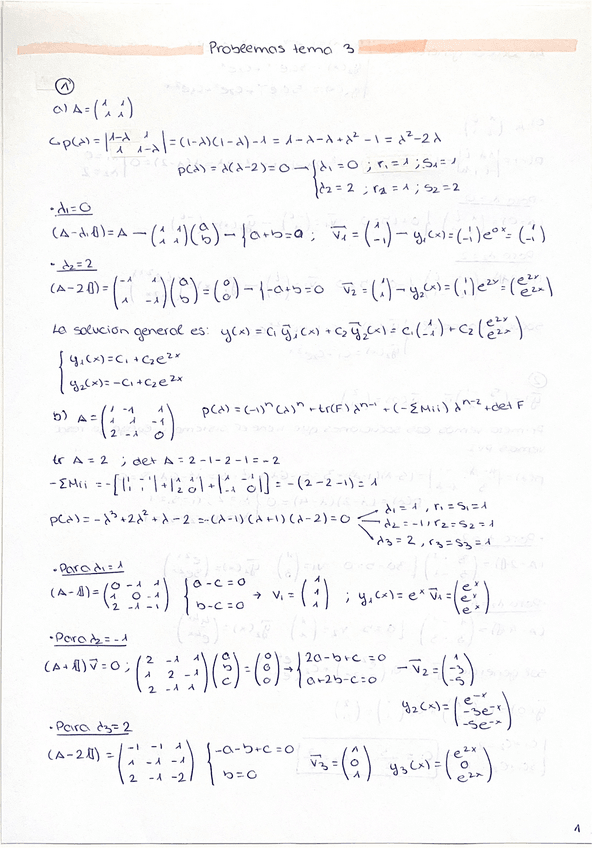 Problemas tema 3
1
a) A = (1 1; 1 1)
↳ p(λ) = |1-λ 1; 1 1-λ| = (1-λ)(1-λ) - 1 = 1-λ-λ+λ² - 1 = λ² - 2λ
p(λ) = λ(λ-2) = 0 → { λ1 = 0 ; r1 = 1 ; s1 = 1
λ2 = 2 ; r2 = 1 ; s2 = 2
· λ1=0
(A-λ1 𝟙) = A → (1 1; 1 1)(a; b) → { a+b=a ; v̄1 = (1; -1) → y1(x) = (1; -1) e^0x = (1; -1)
· λ2=2
(A-2𝟙) = (-1 1; 1 -1)(a; b) = (0; 0) → { -a+b=0 v̄2 = (1; 1) → y2(x) = (1; 1) e^2x = (e^2x; e^2x)
La solución general es: y(x) = C1 ȳ1(x) + C2 ȳ2(x) = C1 (1; -1) + C2 (e^2x; e^2x)
{ y1(x) = C1 + C2e^2x
y2(x) = -C1 + C2e^2x
b) A = (1 -1 1; 1 1 -1; 2 -1 0) p(λ) = (-1)^n (λ)^n + tr(F) λ^n-1 + (-ΣMii) λ^n-2 + det F
tr A = 2 ; det A = 2-1-2-1 = -2
-ΣMii = -[|1 -1; 1 1| + |1 1; 2 0| + |1 -1; -1 0|] = -(2-2-1) = 1
p(λ) = -λ³ + 2λ² + λ - 2 = -(λ-1)(λ+1)(λ-2) = 0 λ1 = 1 , r1 = s1 = 1
λ2 = -1 , r2 = s2 = 1
λ3 = 2 , r3 = s3 = 1
· Para λ1=1
(A-𝟙) = (0 -1 1; 1 0 -1; 2 -1 -1) { a-c=0 b-c=0 → v1 = (1; 1; 1) ; y1(x) = e^x v̄1 = (e^x; e^x; e^x)
· Para λ2=-1
(A+𝟙) v̄ = 0 ; (2 -1 1; 1 2 -1; 2 -1 1)(a; b; c) = (0; 0; 0) → { 2a-b+c=0 a+2b-c=0 → v̄2 = (1; -3; -5)
y2(x) = (e^-x; -3e^-x; -5e^-x)
· Para λ3=2
(A-2𝟙) = (-1 -1 1; 1 -1 -1; 2 -1 -2) { -a-b+c=0 b=0 v̄3 = (1; 0; 1) y3(x) = (e^2x; 0; e^2x)
1